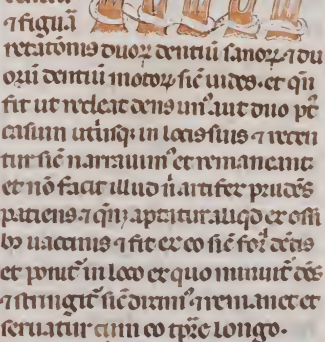 ⁊ figurā
retatōnis duoꝝ dentiū sanoꝝ ⁊ du
oꝝ dentiū motoꝝ sic̄ uides. et qn̄
fit ut redeat dens un᷒ aut duo pt̄
casum utriusqꝫ in locis suis ⁊ reten
tur sic̄ narrauim᷒ et remaneant
et nō facit illud n̄ artifex prudēs
patiens ⁊ qn̄qꝫ aptatur aliqd ex ossi
bꝫ uaccinis ⁊ fit ex eo sic̄ for᷑ dētis
et ponit᷑ in loco ex quo minuit᷑ dēs
⁊ stringit᷑ sic̄ dixim᷒ ⁊ remanet et
seruatur cum eo tp̄re longo.